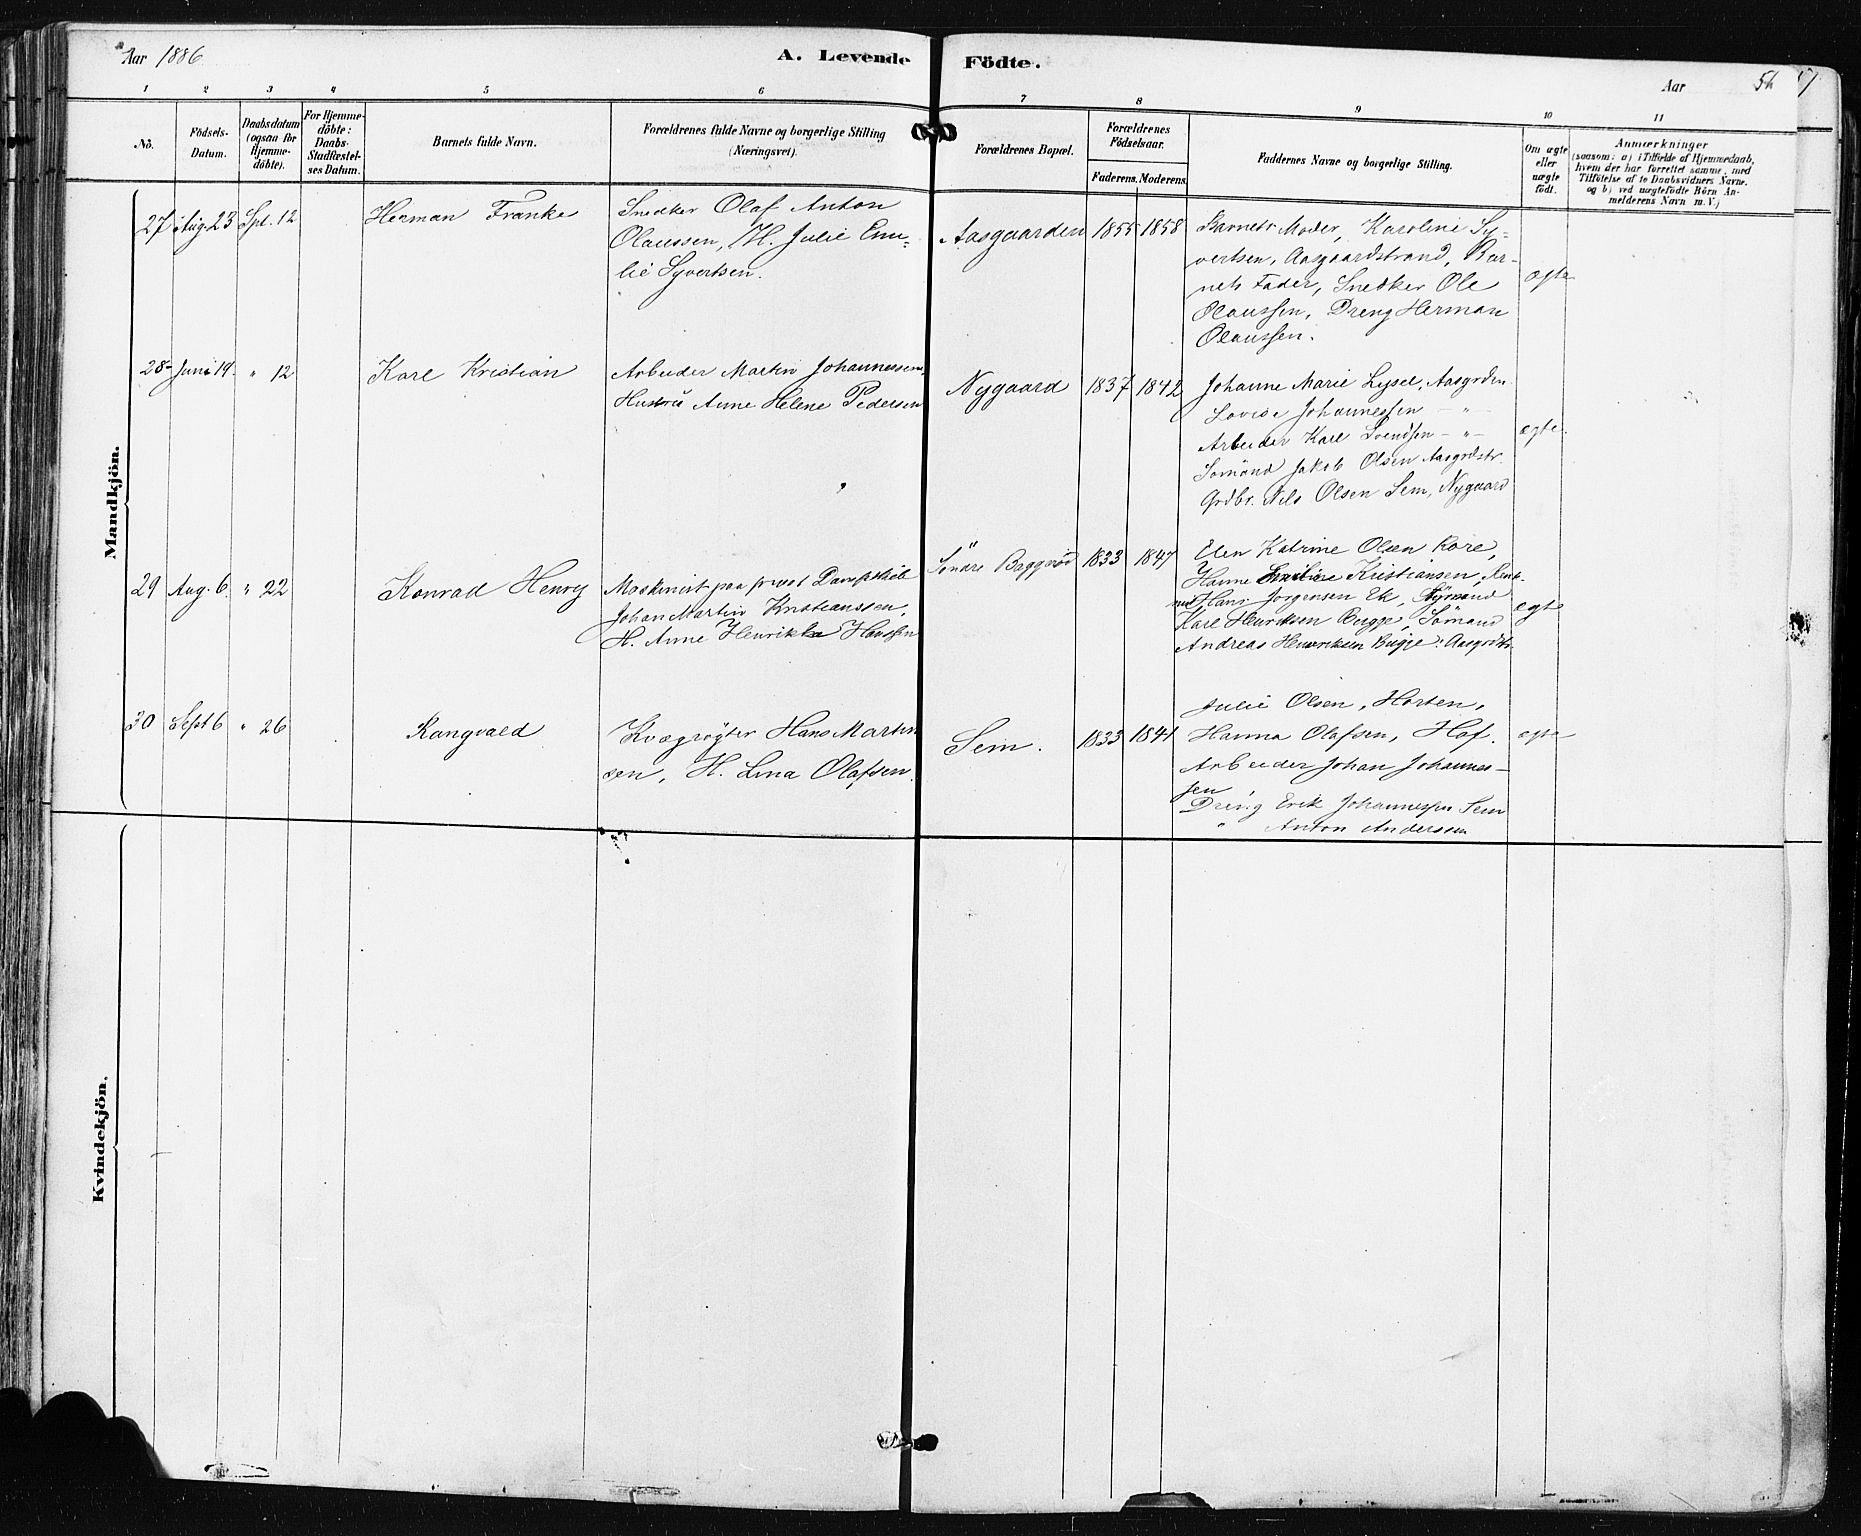 Aar 1886
A. Levende Födte.
Aar
1 2 3 4 5 6 7 8 9 10 11
No.
Födsels-Datum.
Daabsdatum (ogsaa for Hjemme-döbte).
For Hjemme-döbte: Daabs-Stadfæstel-ses Datum.
Barnets fulde Navn.
Forældrenes fulde Navne og borgerlige Stilling (Næringsvei).
Forældrenes Bopæl.
Forældrenes Födselsaar.
Faderens. Moderens.
Faddernes Navne og borgerlige Stilling.
Om ægte eller uægte födt.
Anmærkninger
(saasom: a) i Tilfælde af Hjemmedaab,
hvem der har forrettet samme, med
Tilföielse af to Daabsvidners Navne,
og b) ved uægtefödte Börn An-
melderens Navn m. V.)
Mandkjön.
27 Aug. 23 Spt. 12 Herman Franke
Snedker Olaf Anton
Olaussen, H. Julie Emi-
lie Syvertsen.
Aasgaarden 1855 1858
Barnets Moder, Karoline Sy-
vertsen, Aasgaardstrand, Bar-
nets Fader, Snedker Ole
Olaussen, Dreng Herman
Olaussen.
ægte
28 Juni 19 " 12 Karl Kristian
Arbeider Martin Johannessen,
Hustru Anne Helene Pedersen
Nygaard 1837 1842
Johanne Marie Lysel, Aasgrden.
Lovise Johannessen — " —
Arbeider Karl Svendsen — " —
Sömand Jakob Olsen Aasgrdstr.
Grdbr. Nils Olsen Sem, Nygaard
ægte.
29 Aug. 6. " 22 Konrad Henry
Maskinist paa Dampskib
Johan Martin Kristianssen,
H. Anne Henrikka Hanssen
Söndre Baggeröd 1833 1847
Elen Katrine Olsen Rore,
Hanne Emilie Kristiansen,
Hans Jörgensen Ek,
Karl Henriksen Bugge, Sömand
Andreas Henriksen Bugge: Aasgrdstr.
ægt
30 Sept 6 " 26 Rangvald
Kvægrögter Hans Martin
sen, H. Lina Olafsen.
Sem. 1833 1841
Julie Olsen, Horten,
Hanna Olafsen, Hof.
Arbeider Johan Johannes-
sen
Dreng Erik Johannessen Sem
" Anton Anderssen
ægte
Kvindekjön.